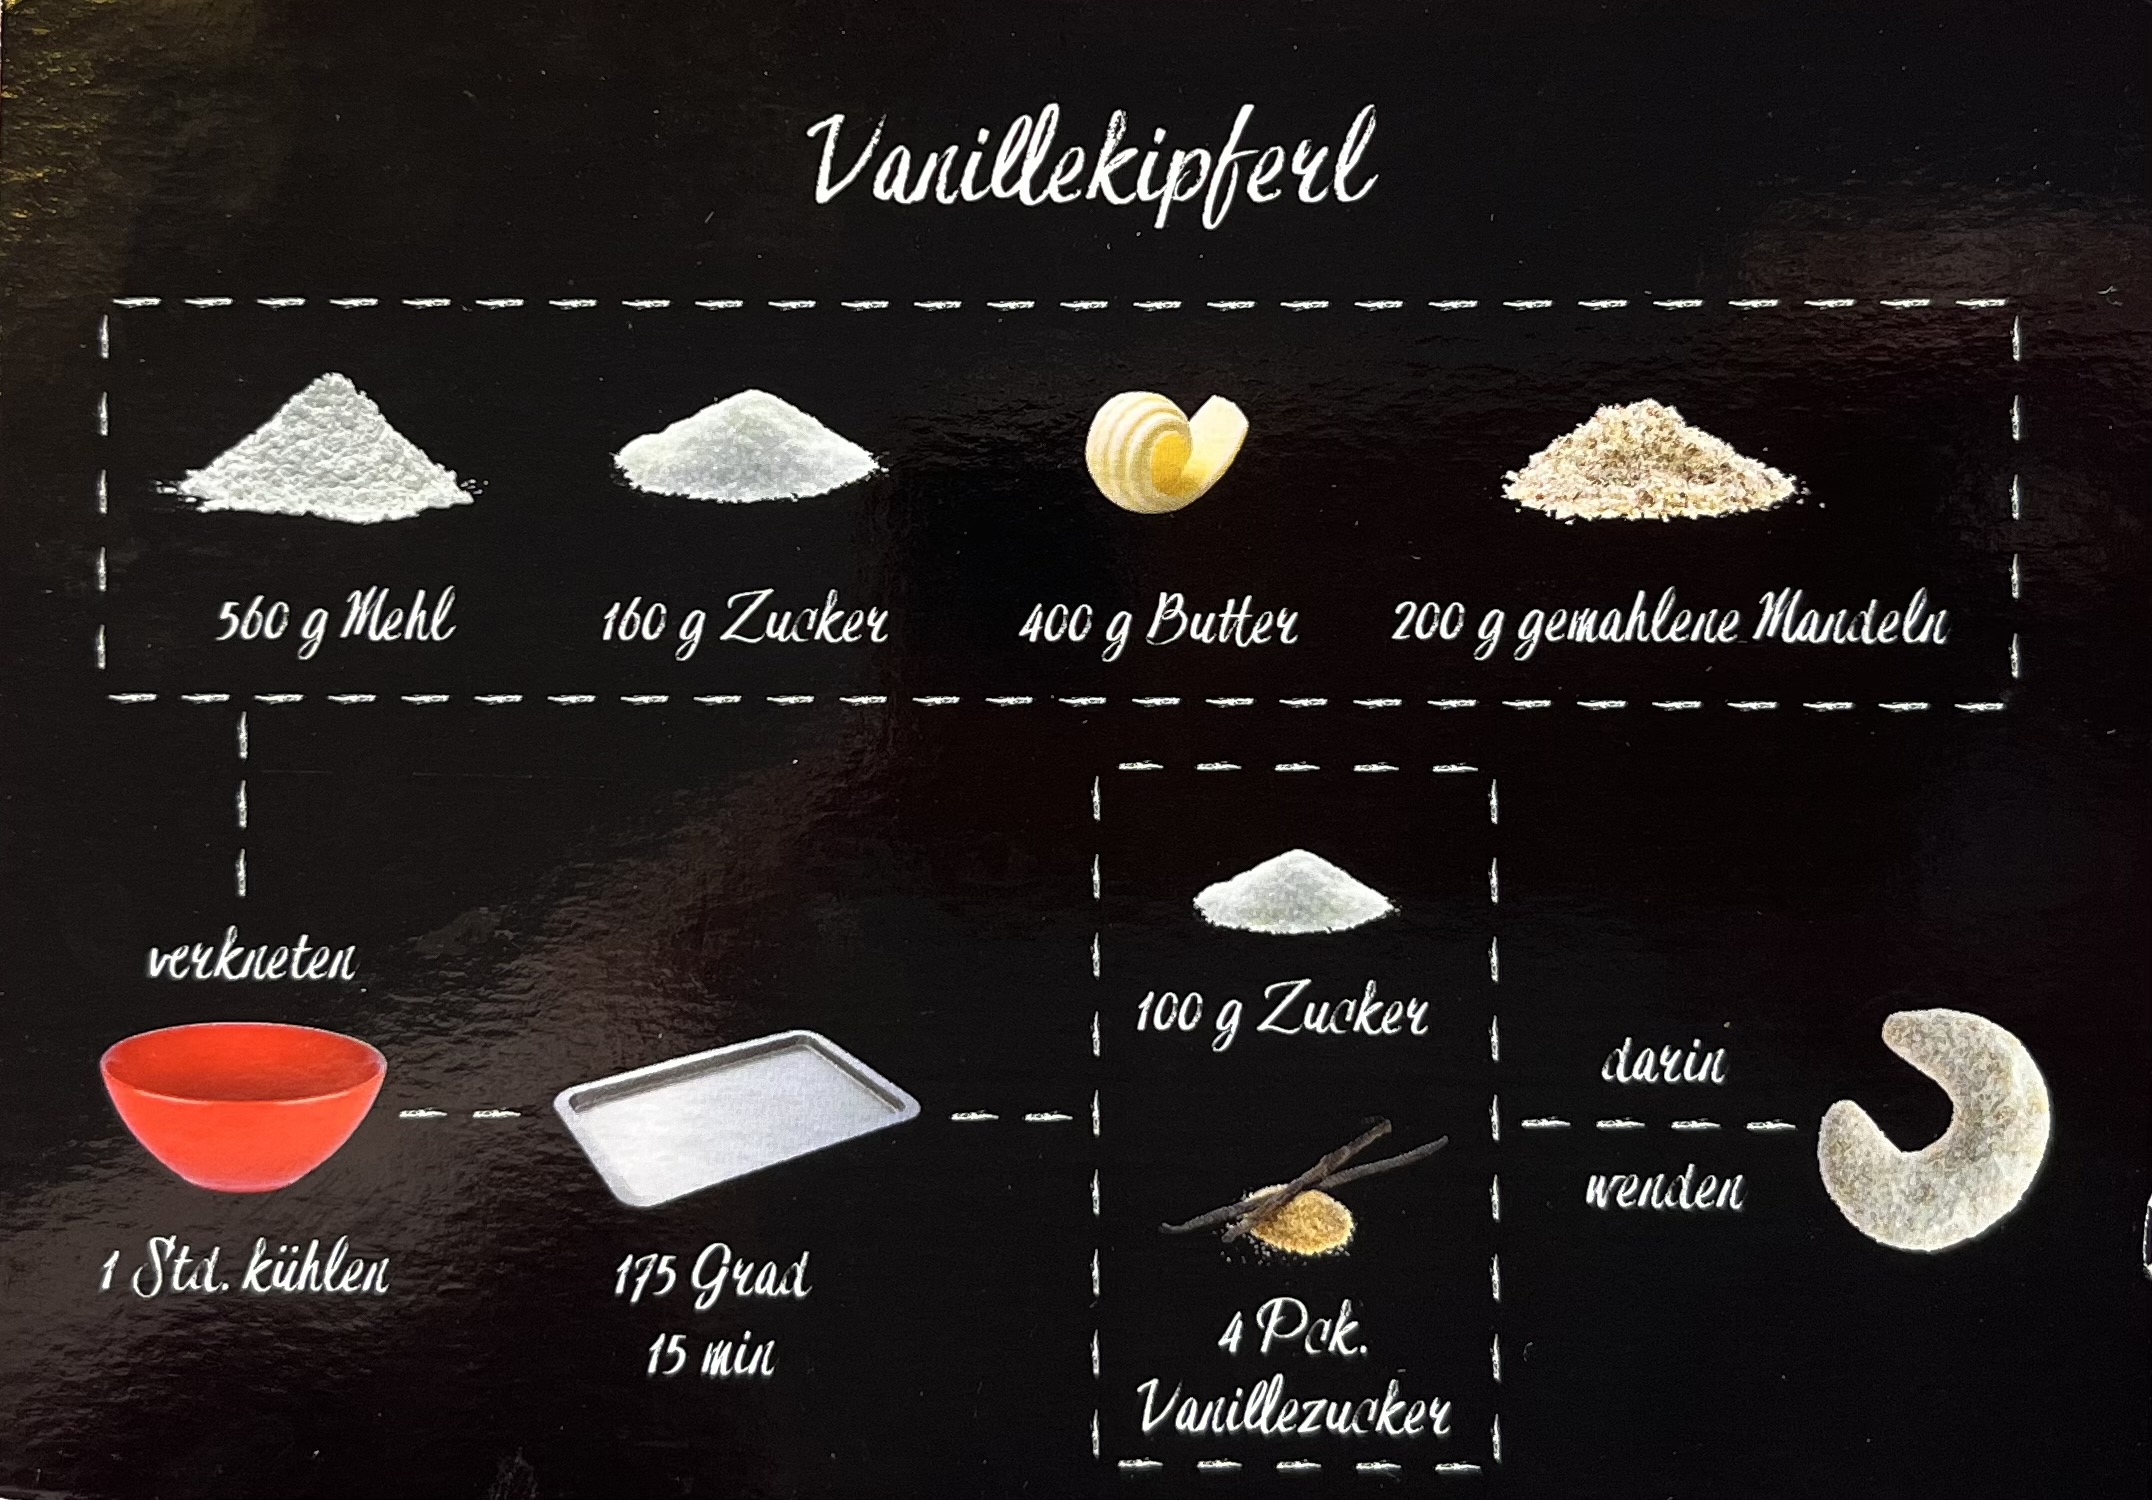 Vanillekipferl
560 g Mehl
160 g Zucker
400 g Butter
200 g gemahlene Mandeln
verkneten
1 Std. kühlen
175 Grad
15 min
100 g Zucker
4 Pck.
Vanillezucker
darin
wenden